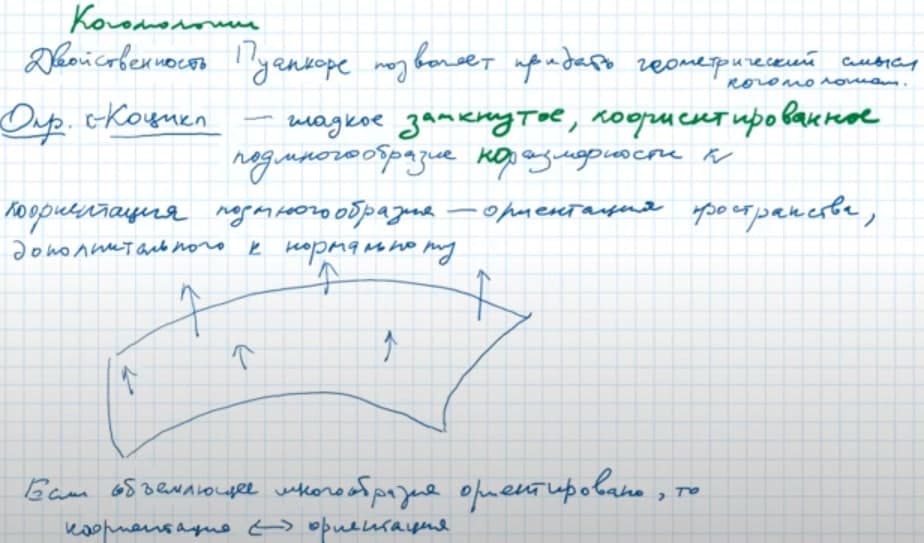 Когомологии
Двойственность Пуанкаре позволяет придать геометрический смысл
когомологиям.
Опр. k-Коцикл — гладкое замкнутое, коориентированное
подмногообразие коразмерности k
Коориентация подмногообразия — ориентация пространства,
дополнительного к нормальному
Если объемлющее многообразие ориентировано, то
коориентация ⟷ ориентация